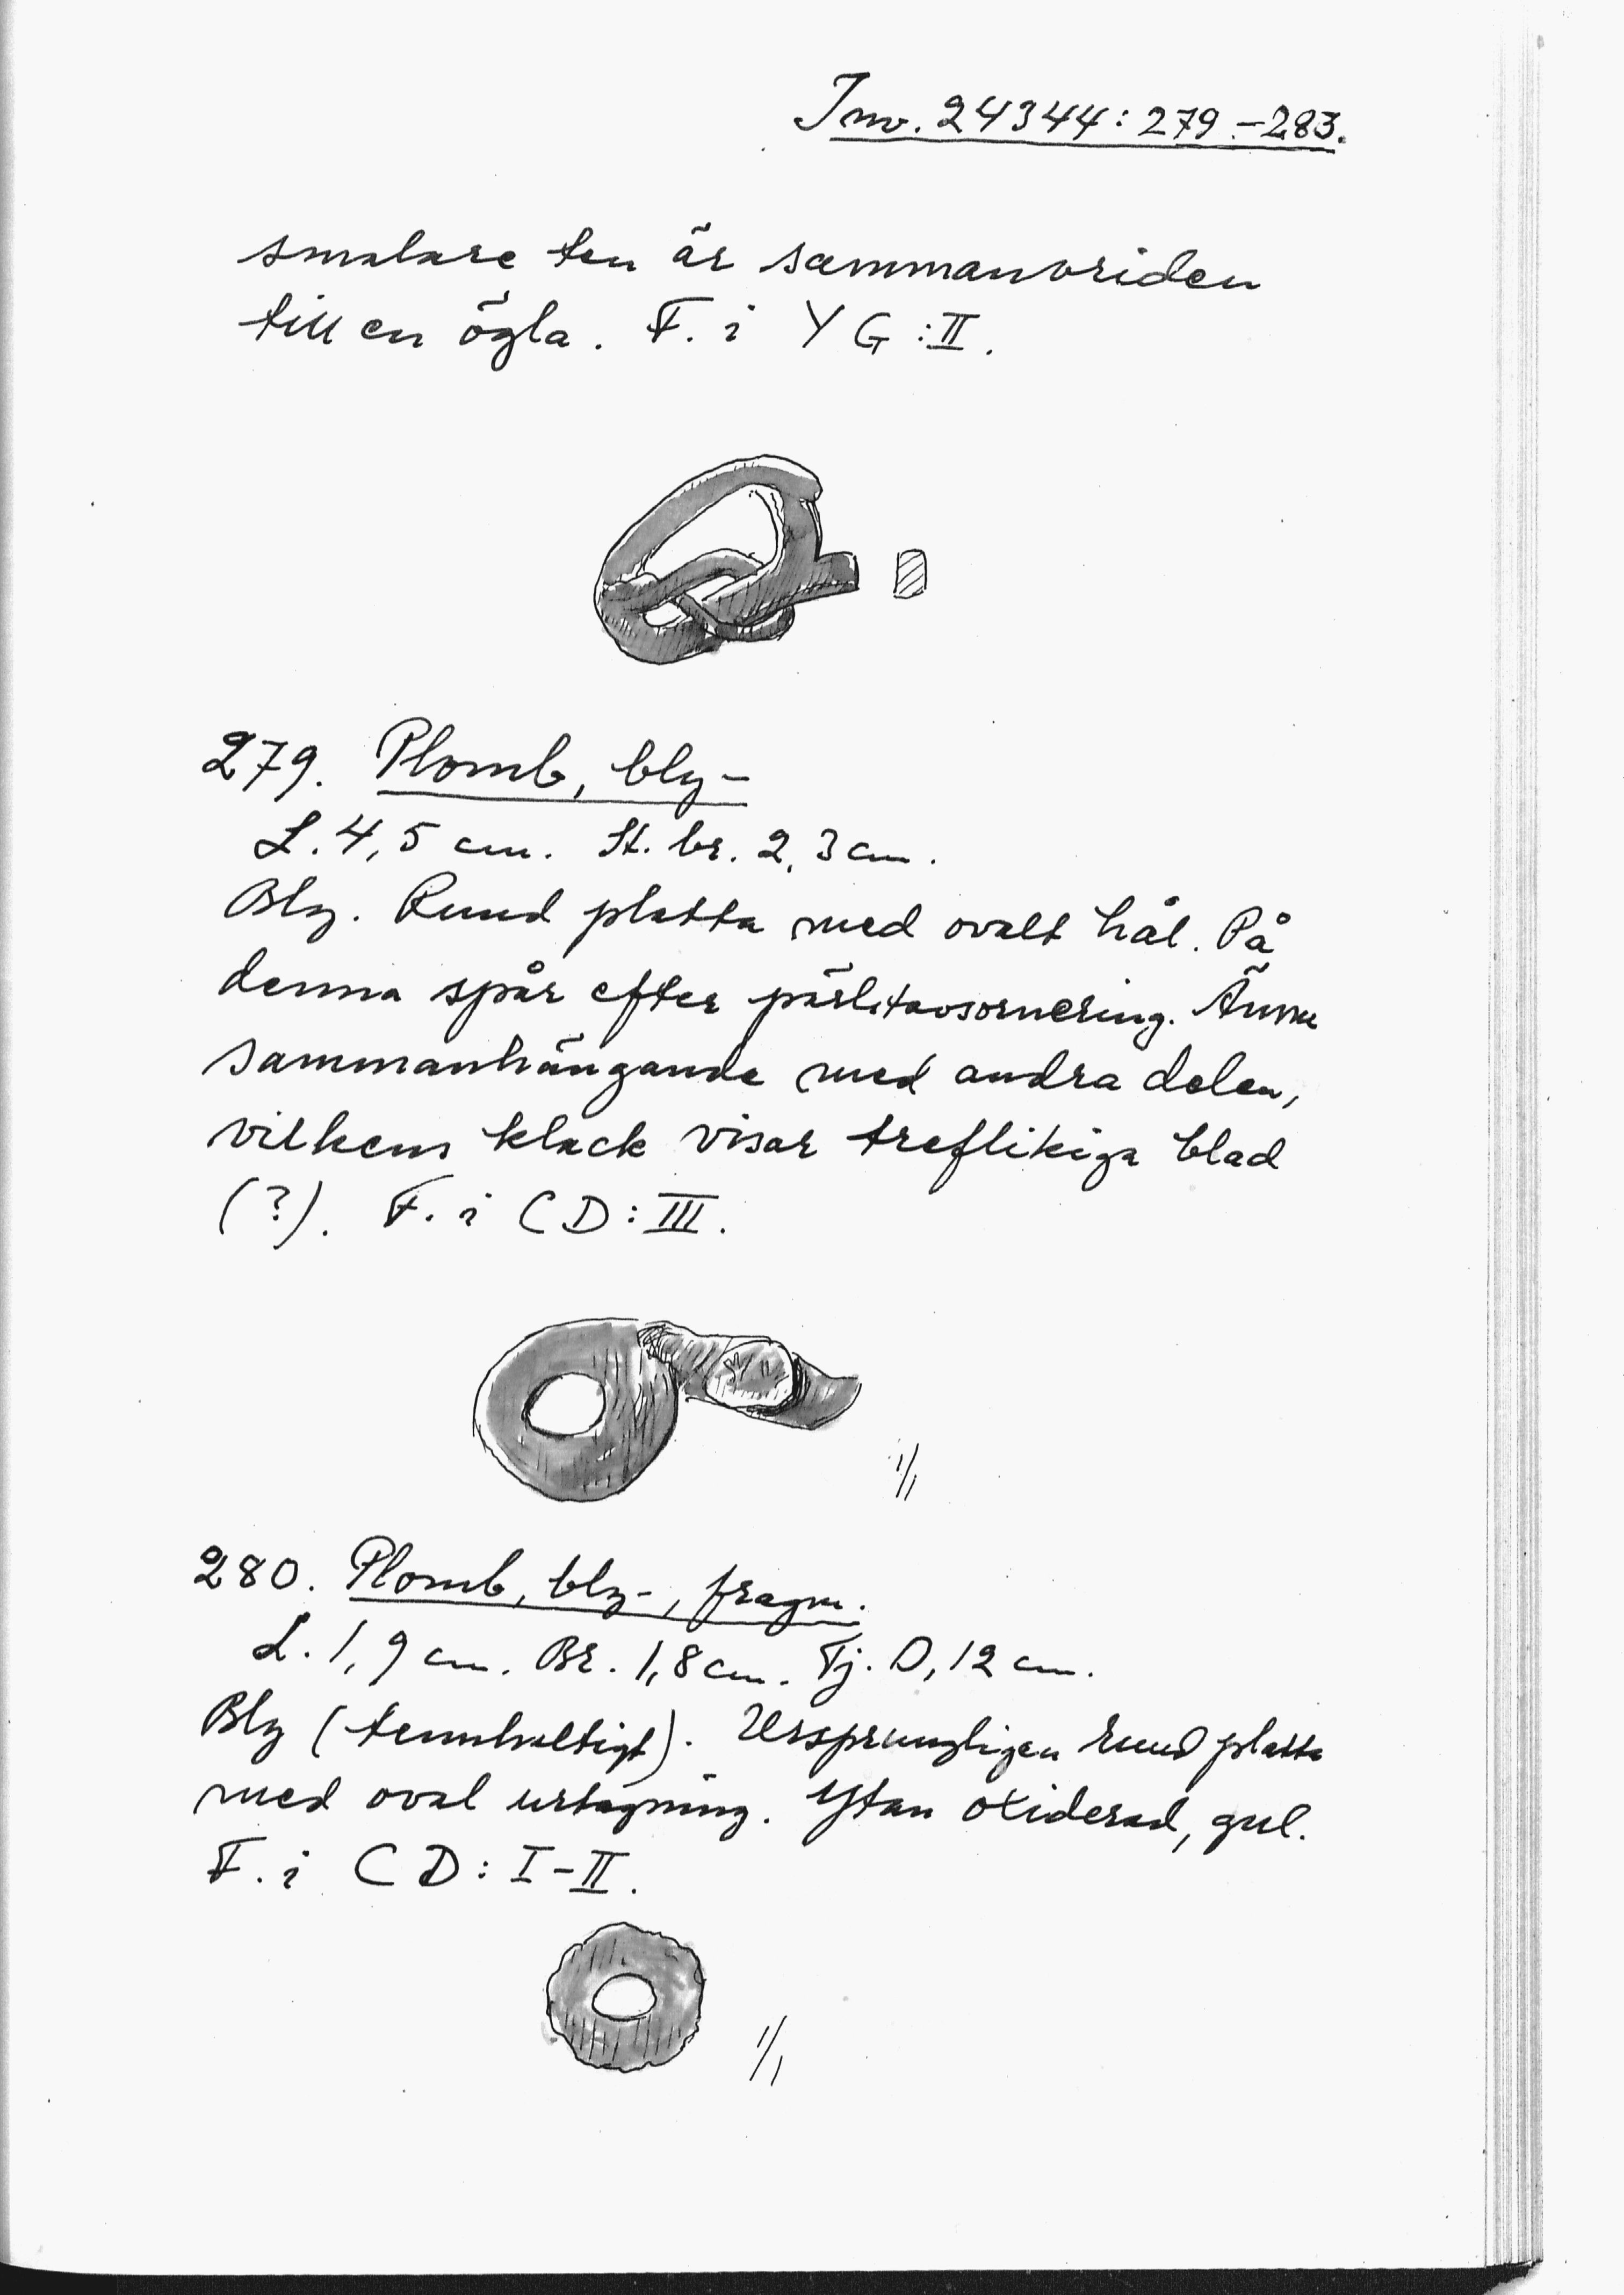 Inv. 24344:279-283.
smalare ten är sammanvriden
till en ögla. F. i YG:II.
279. Plomb, bly-
L. 4,5 cm. St. br. 2,3 cm.
Bly. Rund platta med ovalt hål. På
denna spår efter pärlstavsornering. Ännu
sammanhängande med andra delen,
vilkens klack visar treflikiga blad
(?). F. i CD:III.
1/1
280. Plomb, bly-, fragm.
L. 1,9 cm. Br. 1,8 cm. Tj. 0,12 cm.
Bly (tennhaltigt). Ursprungligen rund platta
med oval urtagning. Ytan oxiderad, gul.
F. i CD: I-II.
1/1